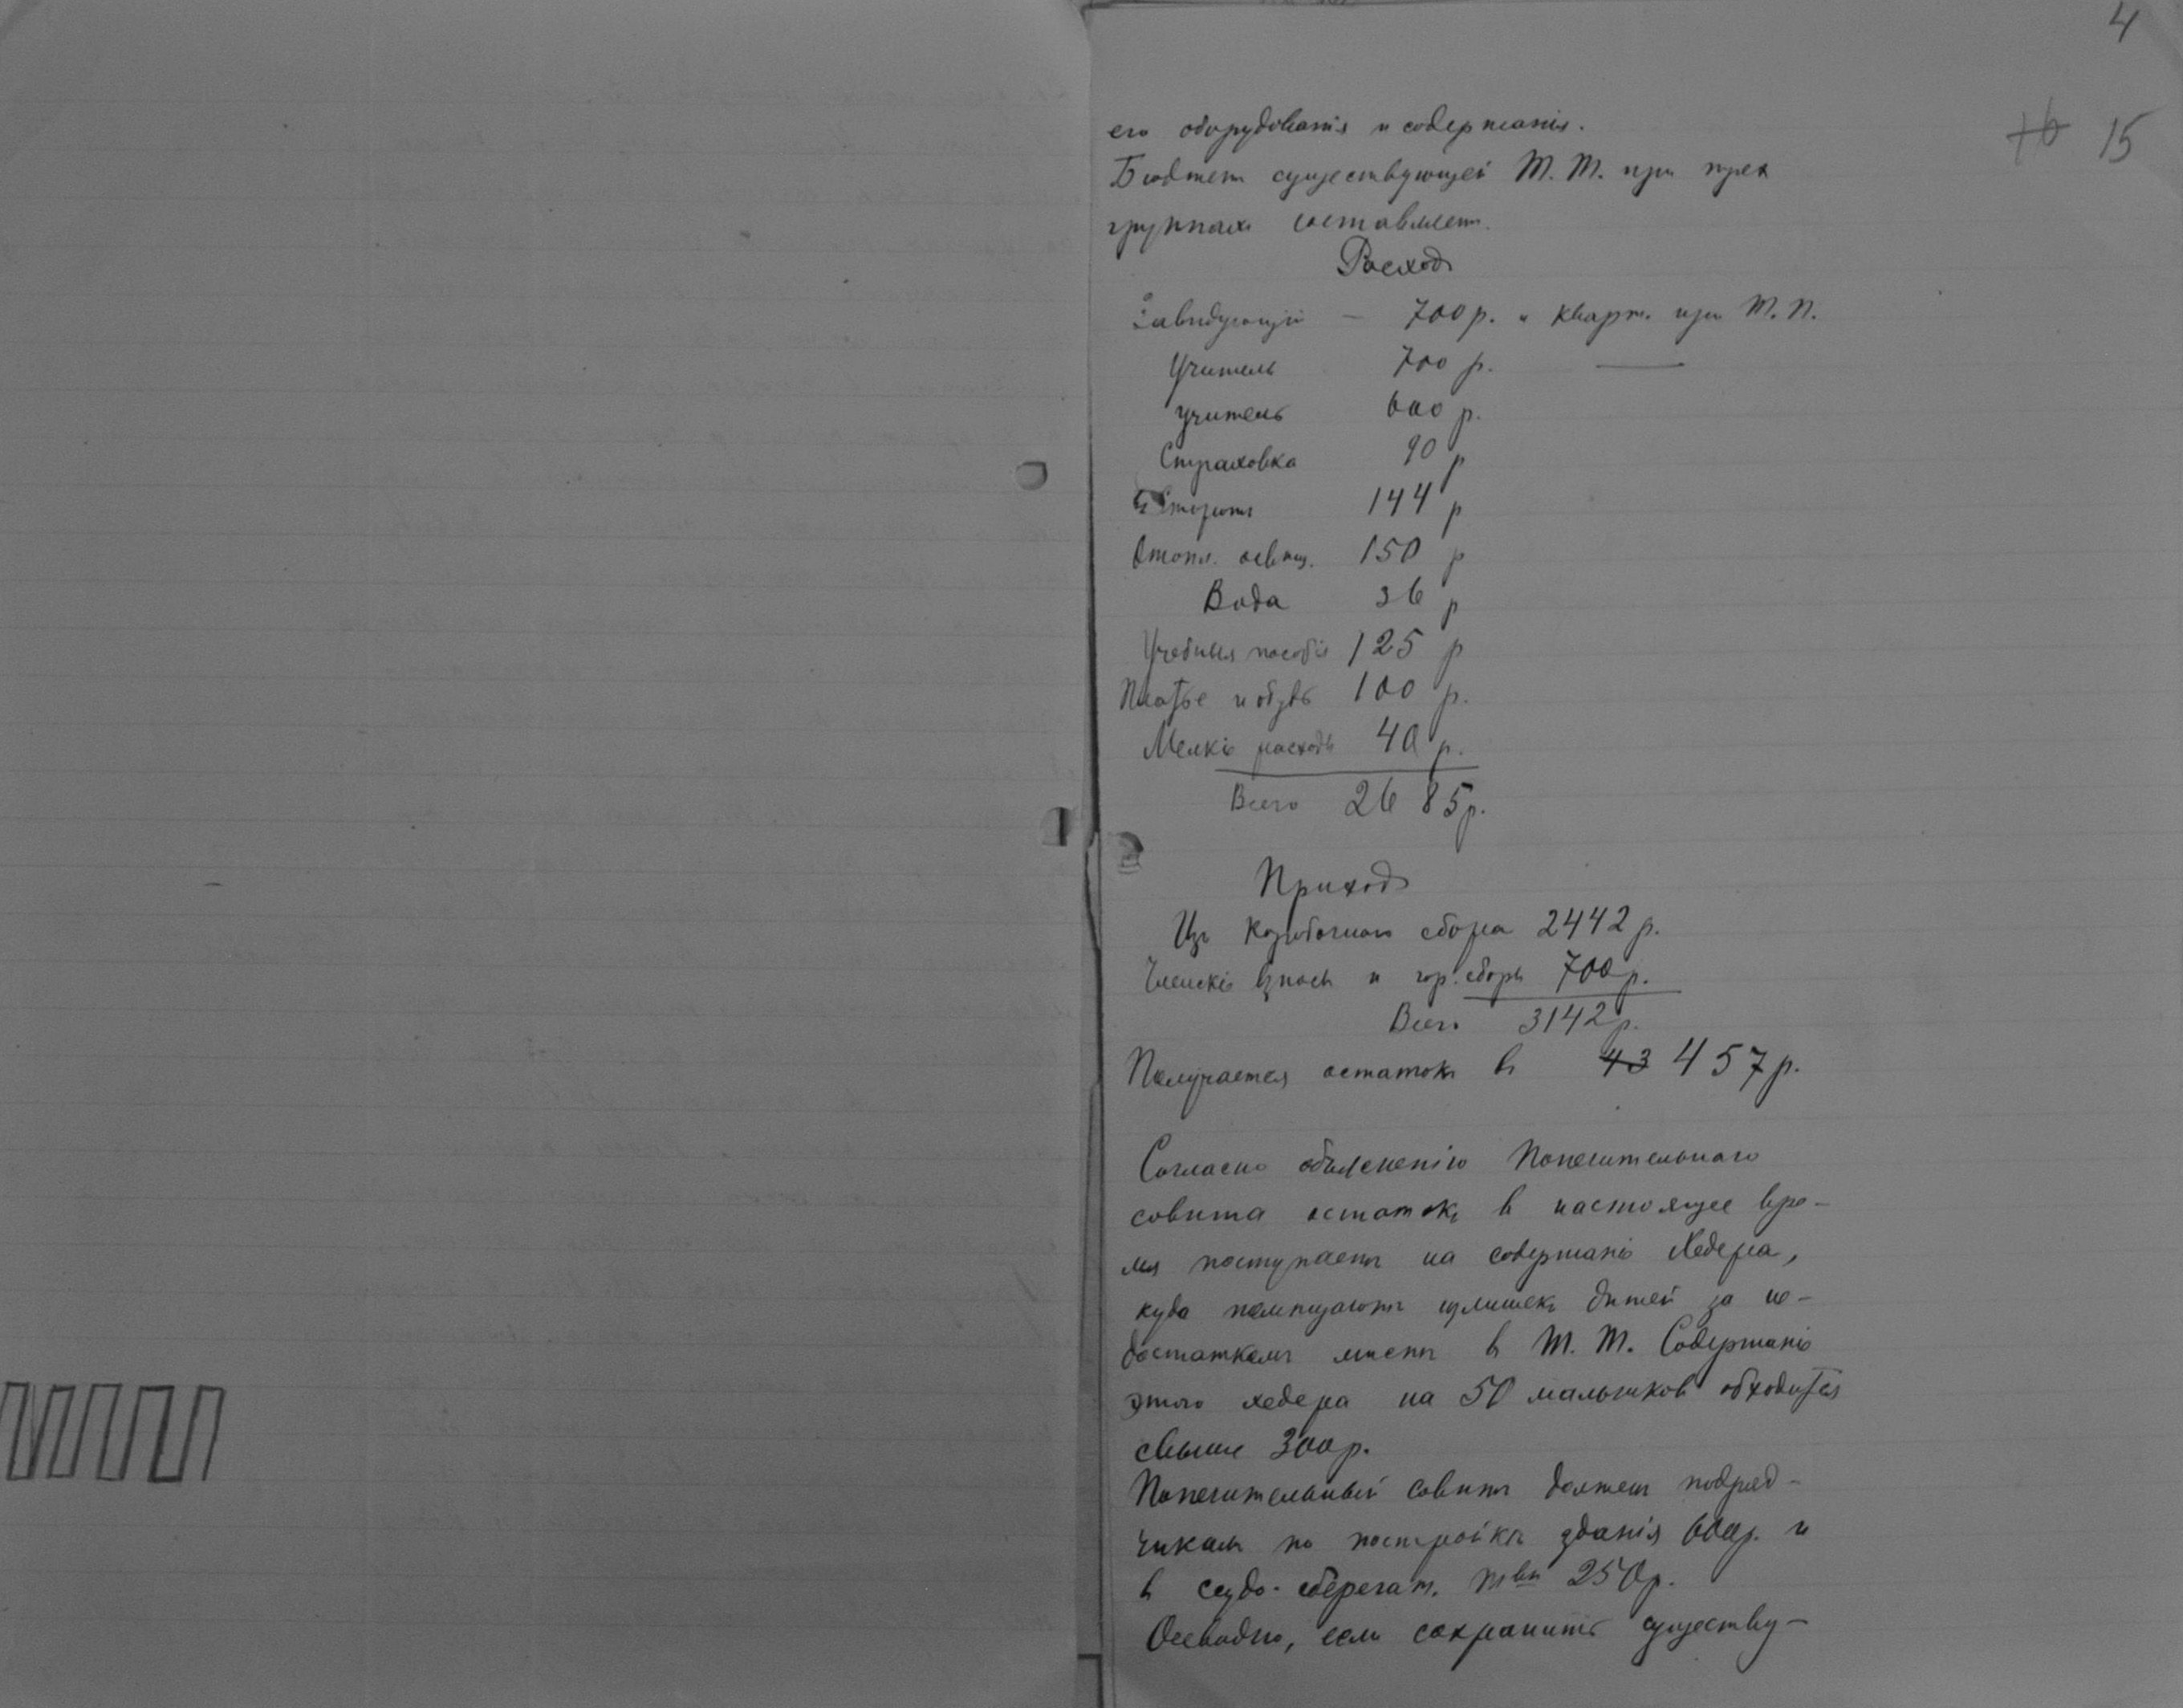 4
16 15
его оборудованiя и содержанiя.
Бюджет существующей Т. Т. при трех
группах составляет.
Расходъ
Завидующiй — 700 р. и кварт. при Т. Т.
Учитель 700 р. —
учитель 600 р.
Страховка 90 р
Сторожъ 144 р
Отопл. освѣщ. 150 р
Вода 36 р
Учебныя пособiя 125 р
Платье и обувь 100 р.
Мелкiе расходы 40 р.
Всего 2685 р.
Приходъ
Изъ коробочнаго сбора 2442 р.
Членскiе взносы и гор. сборы 700 р.
Всего 3142 р.
Получается остатокъ в 43 457 р.
Согласно объясненiю Попечительнаго
совѣта остатокъ в настоящее вре-
мя поступаетъ на содержанiе Хедера,
куда помѣщаютъ излишекъ дѣтей за не-
достаткомъ мѣстъ в Т. Т. Содержанiе
этого хедера на 50 мальчиков обходится
свыше 300 р.
Попечительный совѣтъ долженъ подряд-
чикамъ по постройкѣ зданiя 600 р. и
в ссудо-сберегат. твѣ 250 р.
Очевидно, если сохранить существу-